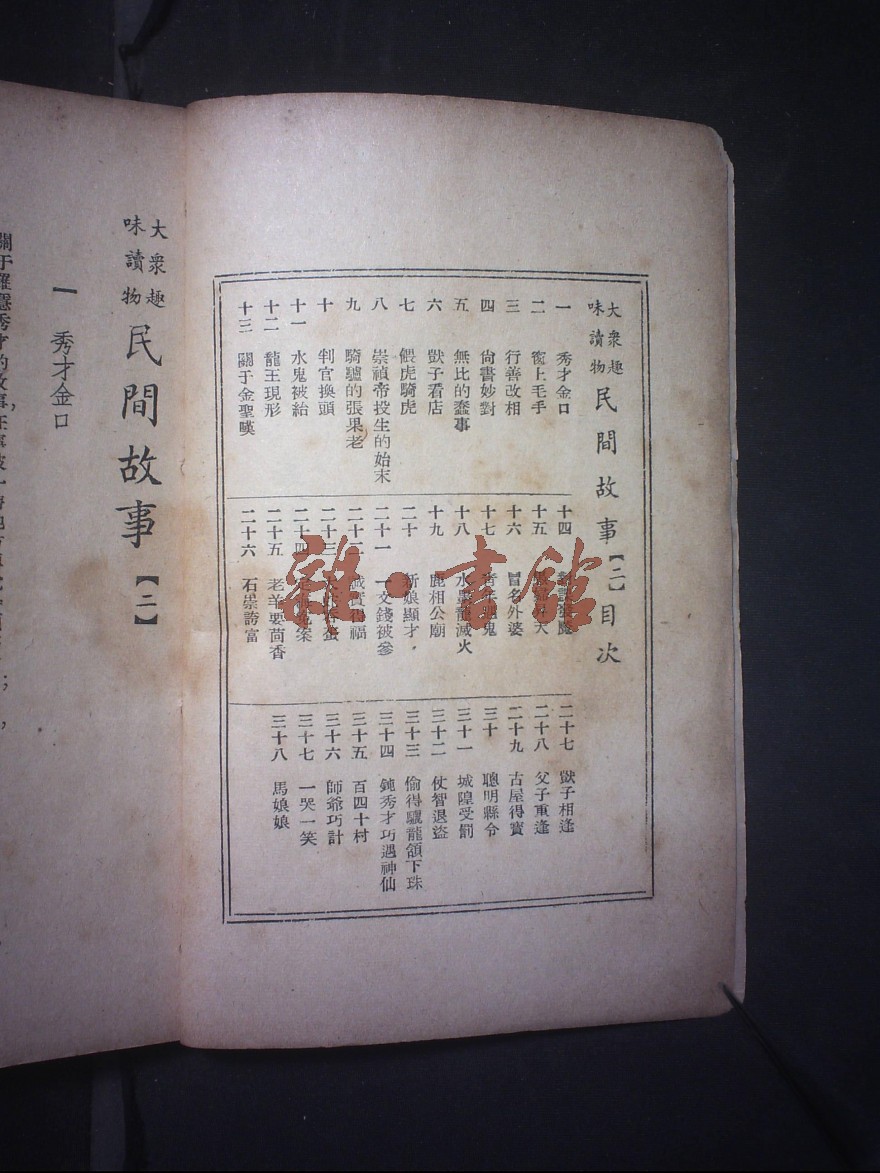 大衆趣味讀物 民間故事【二】目次
一 秀才金口
二 衙上毛手
三 行善改相
四 尙書妙對
五 無比的蠢事
六 獃子看店
七 偎虎騎虎
八 崇禎帝投生的始末
九 騎驢的張果老
十 判官換頭
十一 水鬼被紿
十二 龍王現形
十三 關于金聖暵
十四
十五
十六 冒名外婆
十七
十八 水墨龍滅火
十九 鹿相公廟
二十 新娘顯才
二十一 一文錢被參
二十二 誠實得福
二十三
二十四
二十五 老羊要茴香
二十六 石崇誇富
二十七 獃子相逢
二十八 父子重逢
二十九 古屋得寶
三十 聰明縣令
三十一 城隍受罰
三十二 仗智退盜
三十三 偷得驪龍頷下珠
三十四 鈍秀才巧遇神仙
三十五 百四十村
三十六 師爺巧計
三十七 一哭一笑
三十八 馬娘娘
大衆趣味讀物 民間故事【二】
一 秀才金口
雜·書館